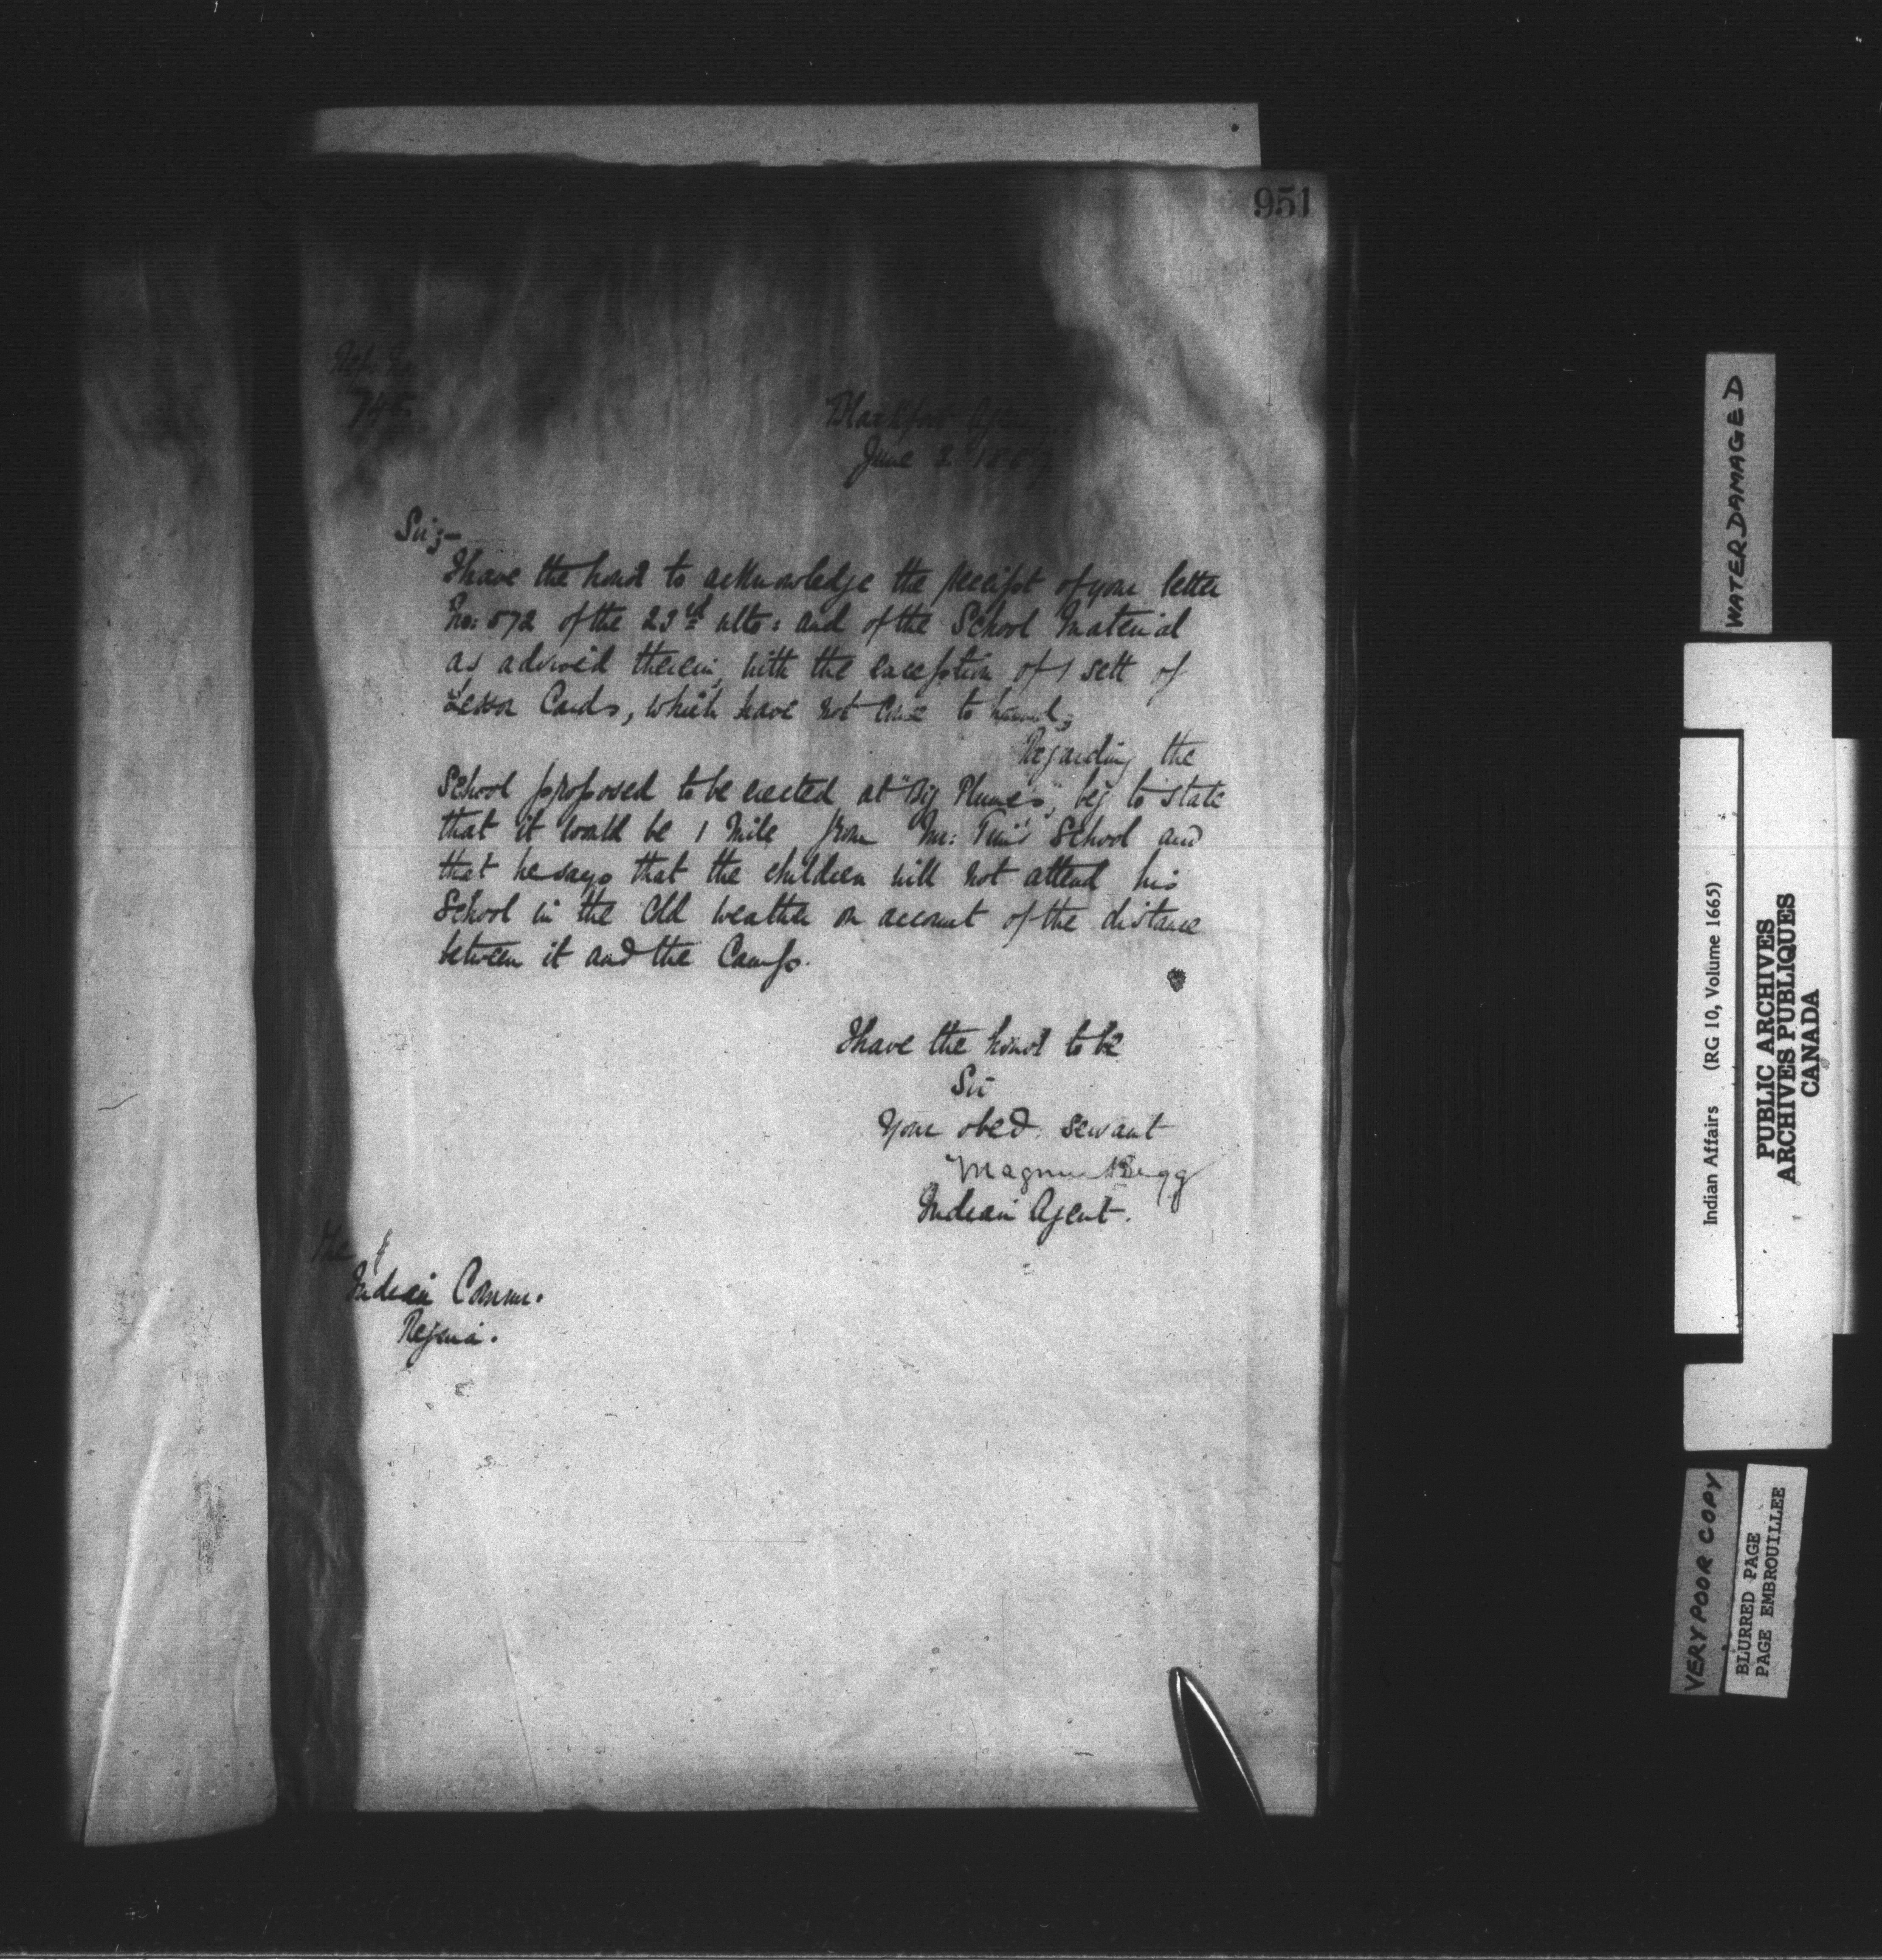 951
Ref: No:
745
Blackfoot Agency
June 2 1887
Sir;-
I have the honor to acknowledge the receipt of your letter
No: 572 of the 23rd ulto: and of the School Material
as advised therein, with the exception of 1 sett of
Lesson Cards, which have not come to hand;
Regarding the
School proposed to be erected at "Big Plumes", beg to state
that it would be 1 Mile from Mr: Tims School and
that he says that the children will not attend his
School in the Cold weather on account of the distance
between it and the Camp.
I have the honor to be
Sir
Your obed. servant
Magnus Begg
Indian Agent.
The
Indian Comm.
Regina.
WATER DAMAGED
Indian Affairs (RG 10, Volume 1665)
PUBLIC ARCHIVES
ARCHIVES PUBLIQUES
CANADA
VERY POOR COPY
BLURRED PAGE
PAGE EMBROUILLEE